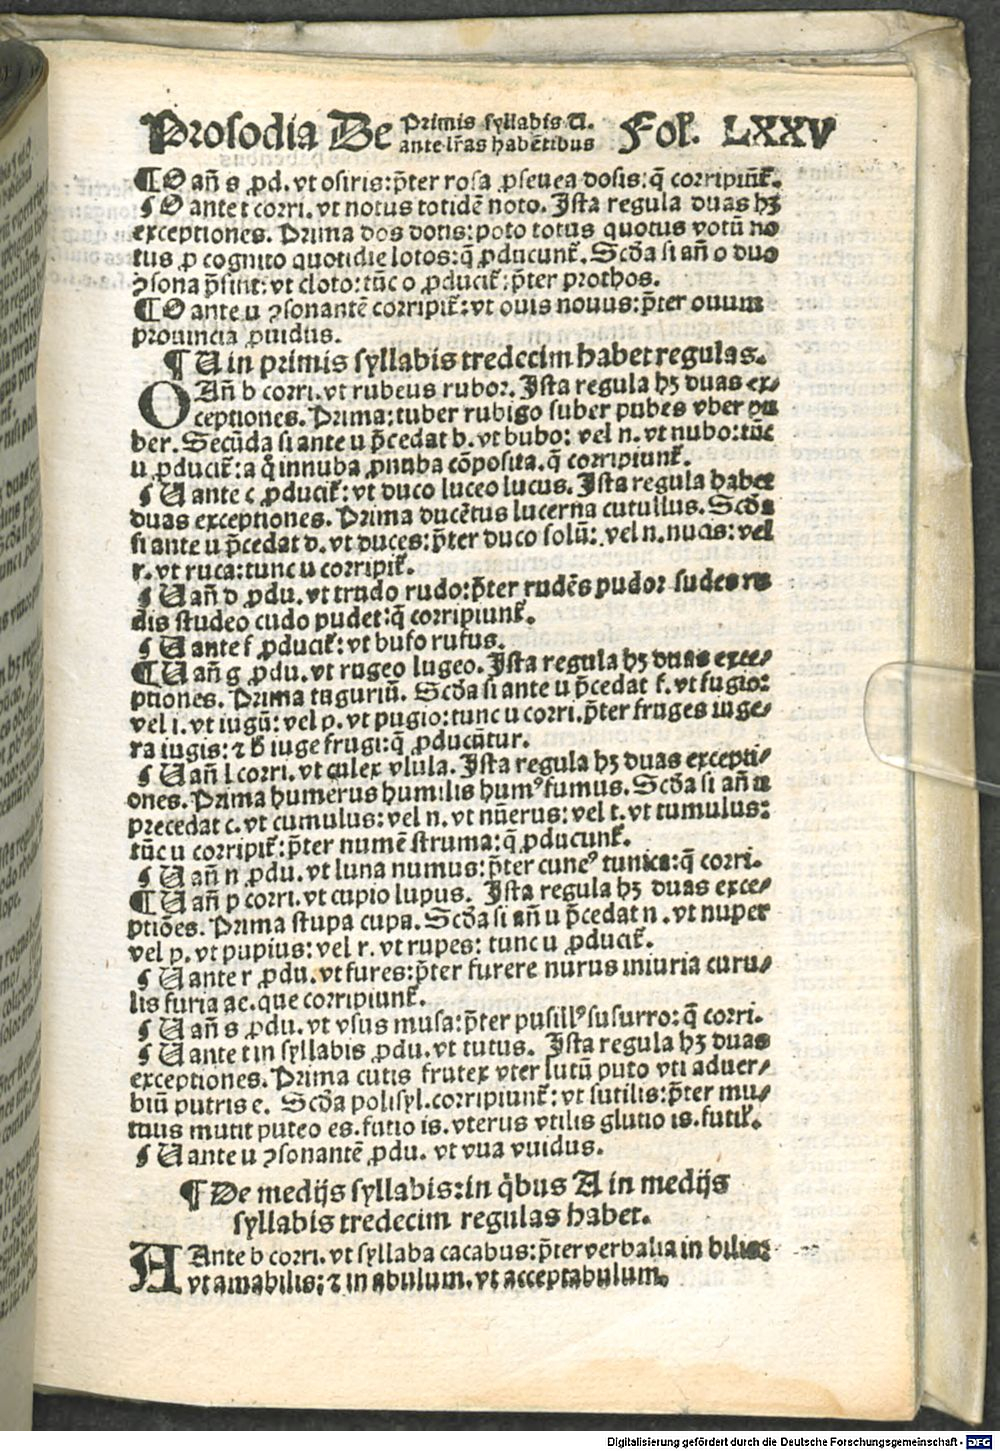 Prosodia De Primis syllabis U. ante lr̄as habētibus Fol. LXXV
¶ O añ s ꝓd. vt osiris: p̄ter rosa ꝓseuea dosis: q̄ corripiūt̄.
¶ O ante t corri. vt notus totidē noto. Ista regula duas hꝫ
exceptiones. Prima dos dotis: poto totus quotus votū no
tus ꝓ cognito quotidie lotos: q̄ ꝓducunt̄. Scd̄a si añ o duo
ꝯsona p̄sint: vt cloto: tūc o ꝓducit̄: p̄ter prothos.
¶ O ante u ꝯsonantē corripit̄: vt ouis nouus: p̄ter ouum
prouincia ꝓuidus.
¶ U in primis syllabis tredecim habet regulas.
O Añ b corri. vt rubeus rubor. Ista regula hꝫ duas ex⸗
ceptiones. Prima: tuber rubigo suber pubes vber pu
ber. Secūda si ante u p̄cedat b. vt bubo: vel n. vt nubo: tūc
u ꝓducit̄: a q̊ innuba ꝓnuba cōposita. q̄ corripiunt̄.
¶ U ante c ꝓducit̄: vt duco luceo lucus. Ista regula habet
duas exceptiones. Prima ducētus lucerna cutullus. Scd̄a
si ante u p̄cedat d. vt duces: p̄ter duco solū: vel n. nucis: vel
r. vt ruca: tunc u corripit̄.
¶ U añ d ꝓdu. vt trudo rudo: p̄ter rudēs pudor sudes ru
dis studeo cudo pudet: q̄ corripiunt̄.
¶ U ante f ꝓducit̄: vt bufo rufus.
¶ U añ g ꝓdu. vt rugeo lugeo. Ista regula hꝫ duas exce⸗
ptiones. Prima tuguriū. Scd̄a si ante u p̄cedat f. vt fugio:
vel i. vt iugū: vel p. vt pugio: tunc u corri. p̄ter fruges iuge⸗
ra iugis: ⁊ b̄ iuge frugi: q̄ ꝓducūtur.
¶ U añ l corri. vt culex vlula. Ista regula hꝫ duas excepti⸗
ones. Prima humerus humilis humꝰ fumus. Scd̄a si añ u
precedat c. vt cumulus: vel n. vt nūerus: vel t. vt tumulus:
tūc u corripit̄: p̄ter numē struma: q̄ ꝓducunt̄.
¶ U añ n ꝓdu. vt luna numus: p̄ter cuneꝰ tunica: q̄ corri.
¶ U añ p corri. vt cupio lupus. Ista regula hꝫ duas exce⸗
ptiōes. Prima stupa cupa. Scd̄a si añ u p̄cedat n. vt nuper
vel p. vt pupius: vel r. vt rupes: tunc u ꝓducit̄.
¶ U ante r ꝓdu. vt fures: p̄ter furere nurus iniuria curu⸗
lis furia ae. que corripiunt̄.
¶ U añ s ꝓdu. vt vsus musa: p̄ter pusillꝰ susurro: q̄ corri.
¶ U ante t in syllabis ꝓdu. vt tutus. Ista regula hꝫ duas
exceptiones. Prima cutis frutex vter sutū puto vti aduer⸗
biū putris e. Scd̄a polisyl. corripiunt̄: vt sutilis: p̄ter mu⸗
tuus mutit puteo es. futio is. vterus vtilis glutio is. futil̄.
¶ U ante u ꝯsonantē ꝓdu. vt vua vuidus.
¶ De medijs syllabis: in q̊bus A in medijs
syllabis tredecim regulas habet.
A Ante b corri. vt syllaba cacabus: p̄ter verbalia in bilis:
vt amabilis; ⁊ in abulum. vt acceptabulum.
Digitalisierung gefördert durch die Deutsche Forschungsgemeinschaft - DFG